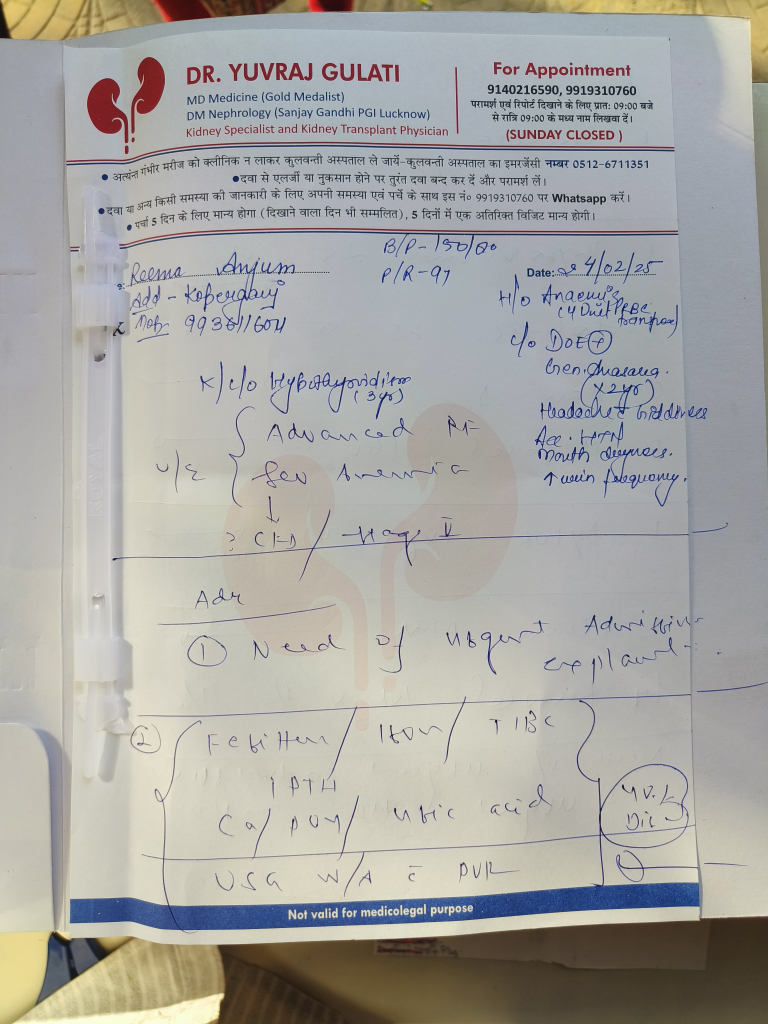 DR. YUVRAJ GULATI
MD Medicine (Gold Medalist)
DM Nephrology (Sanjay Gandhi PGI Lucknow)
Kidney Specialist and Kidney Transplant Physician
For Appointment
9140216590, 9919310760
परामर्श एवं रिपोर्ट दिखाने के लिए प्रातः 09:00 बजे
से रात्रि 09:00 के मध्य नाम लिखवा दें।
(SUNDAY CLOSED )
• अत्यंन्त गंभीर मरीज को क्लीनिक न लाकर कुलवन्ती अस्पताल ले जायें-कुलवन्ती अस्पताल का इमरजेंसी नम्बर 0512-6711351
•दवा से एलर्जी या नुकसान होने पर तुरंत दवा बन्द कर दें और परामर्श लें।
•दवा या अन्य किसी समस्या की जानकारी के लिए अपनी समस्या एवं पर्चे के साथ इस नं० 9919310760 पर Whatsapp करें।
• पर्चा 5 दिन के लिए मान्य होगा (दिखाने वाला दिन भी सम्मलित), 5 दिनों में एक अतिरिक्त विजिट मान्य होगी।
Reema Anjum
B/P-150/80
P/R-97
Date: 4/02/25
Add -
Mob: 
H/o
c/o DOE (+)
(x2yr)
K/c/o
(3yr)
Headache
Advanced RF
Acc. HTN
Sev Anemia
Mouth
↑ frequency.
? CKD / Stage V
Adv
① Need of urgent Admission
explained
② Ferritin / Iron / TIBC
iPTH
Ca/ PO4/ Uric acid
USG W/A c̄ PVR
Not valid for medicolegal purpose